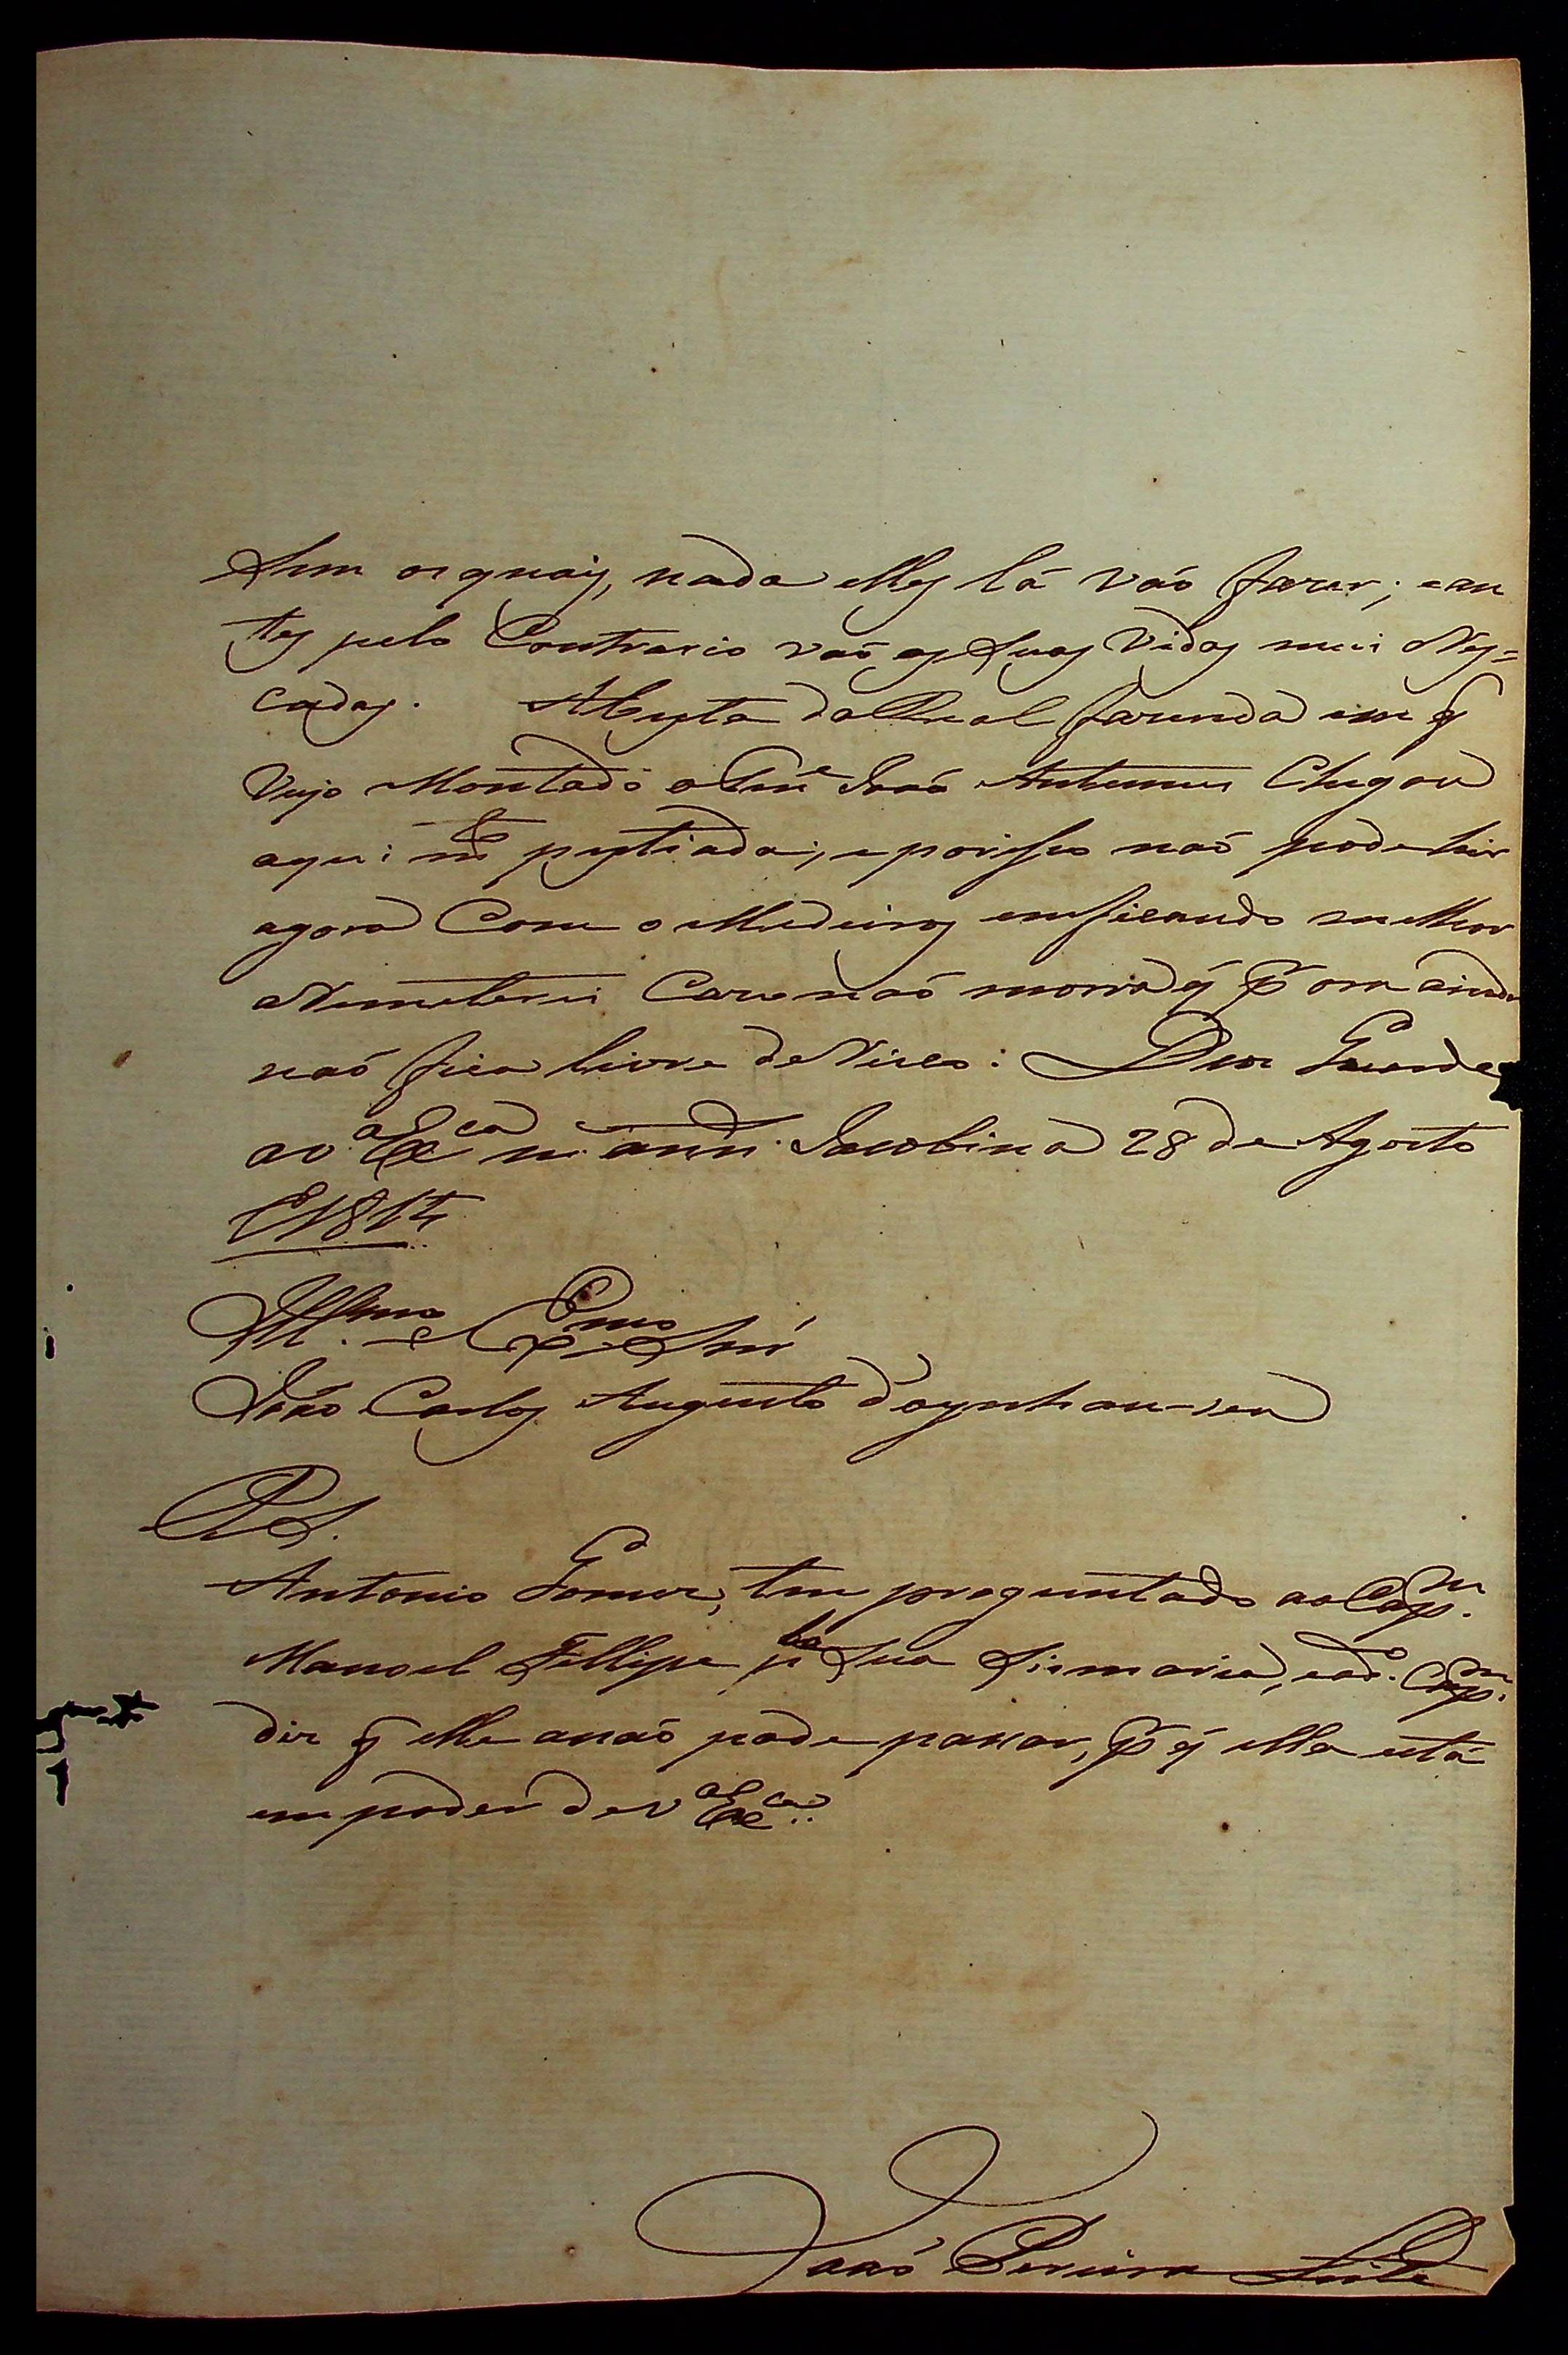 Sem os quais, nada elles lá vaó fazer; e an
tes pelo Contrario vaó as Suas Vidas mui Res=
cadas. A besta da Real fazenda em q̃
Vejo Montado o Ten.e Joaó Antunes Chegou
aqui m.to pestiada, e por isso naó pode hir
agora Com o Medeiros em ficando melhor
a Remeterei Cazo naó morra q̃ p̃ ora ainda
naó fica livre de Risco: Deos Guarde
a V.a Ex.ca m. ann. Jacobina 28 de Agosto
E1814
Ill.mo e Ex.mo Snr
Joaó Carlos Augusto d'oyenhau-sen
P.S.
Antonio Gomes, tem proguntado ao Cap.m
Manoel Fellipe p.la Sua Sismaria, e o d.o Cap.m
diz q̃ elle a naó pode passar, p̃ q̃ ella está
em poder de V.a Ex.ca
Joaó Pereira Leite